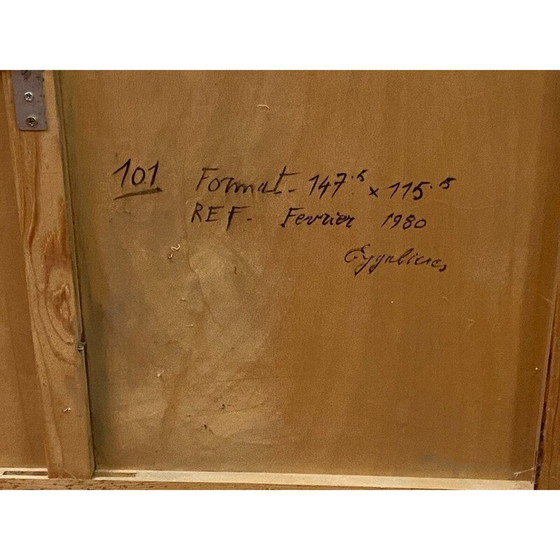 101 Format - 147.5 x 115.5
REF - Fevrier 1980
Eygalieres